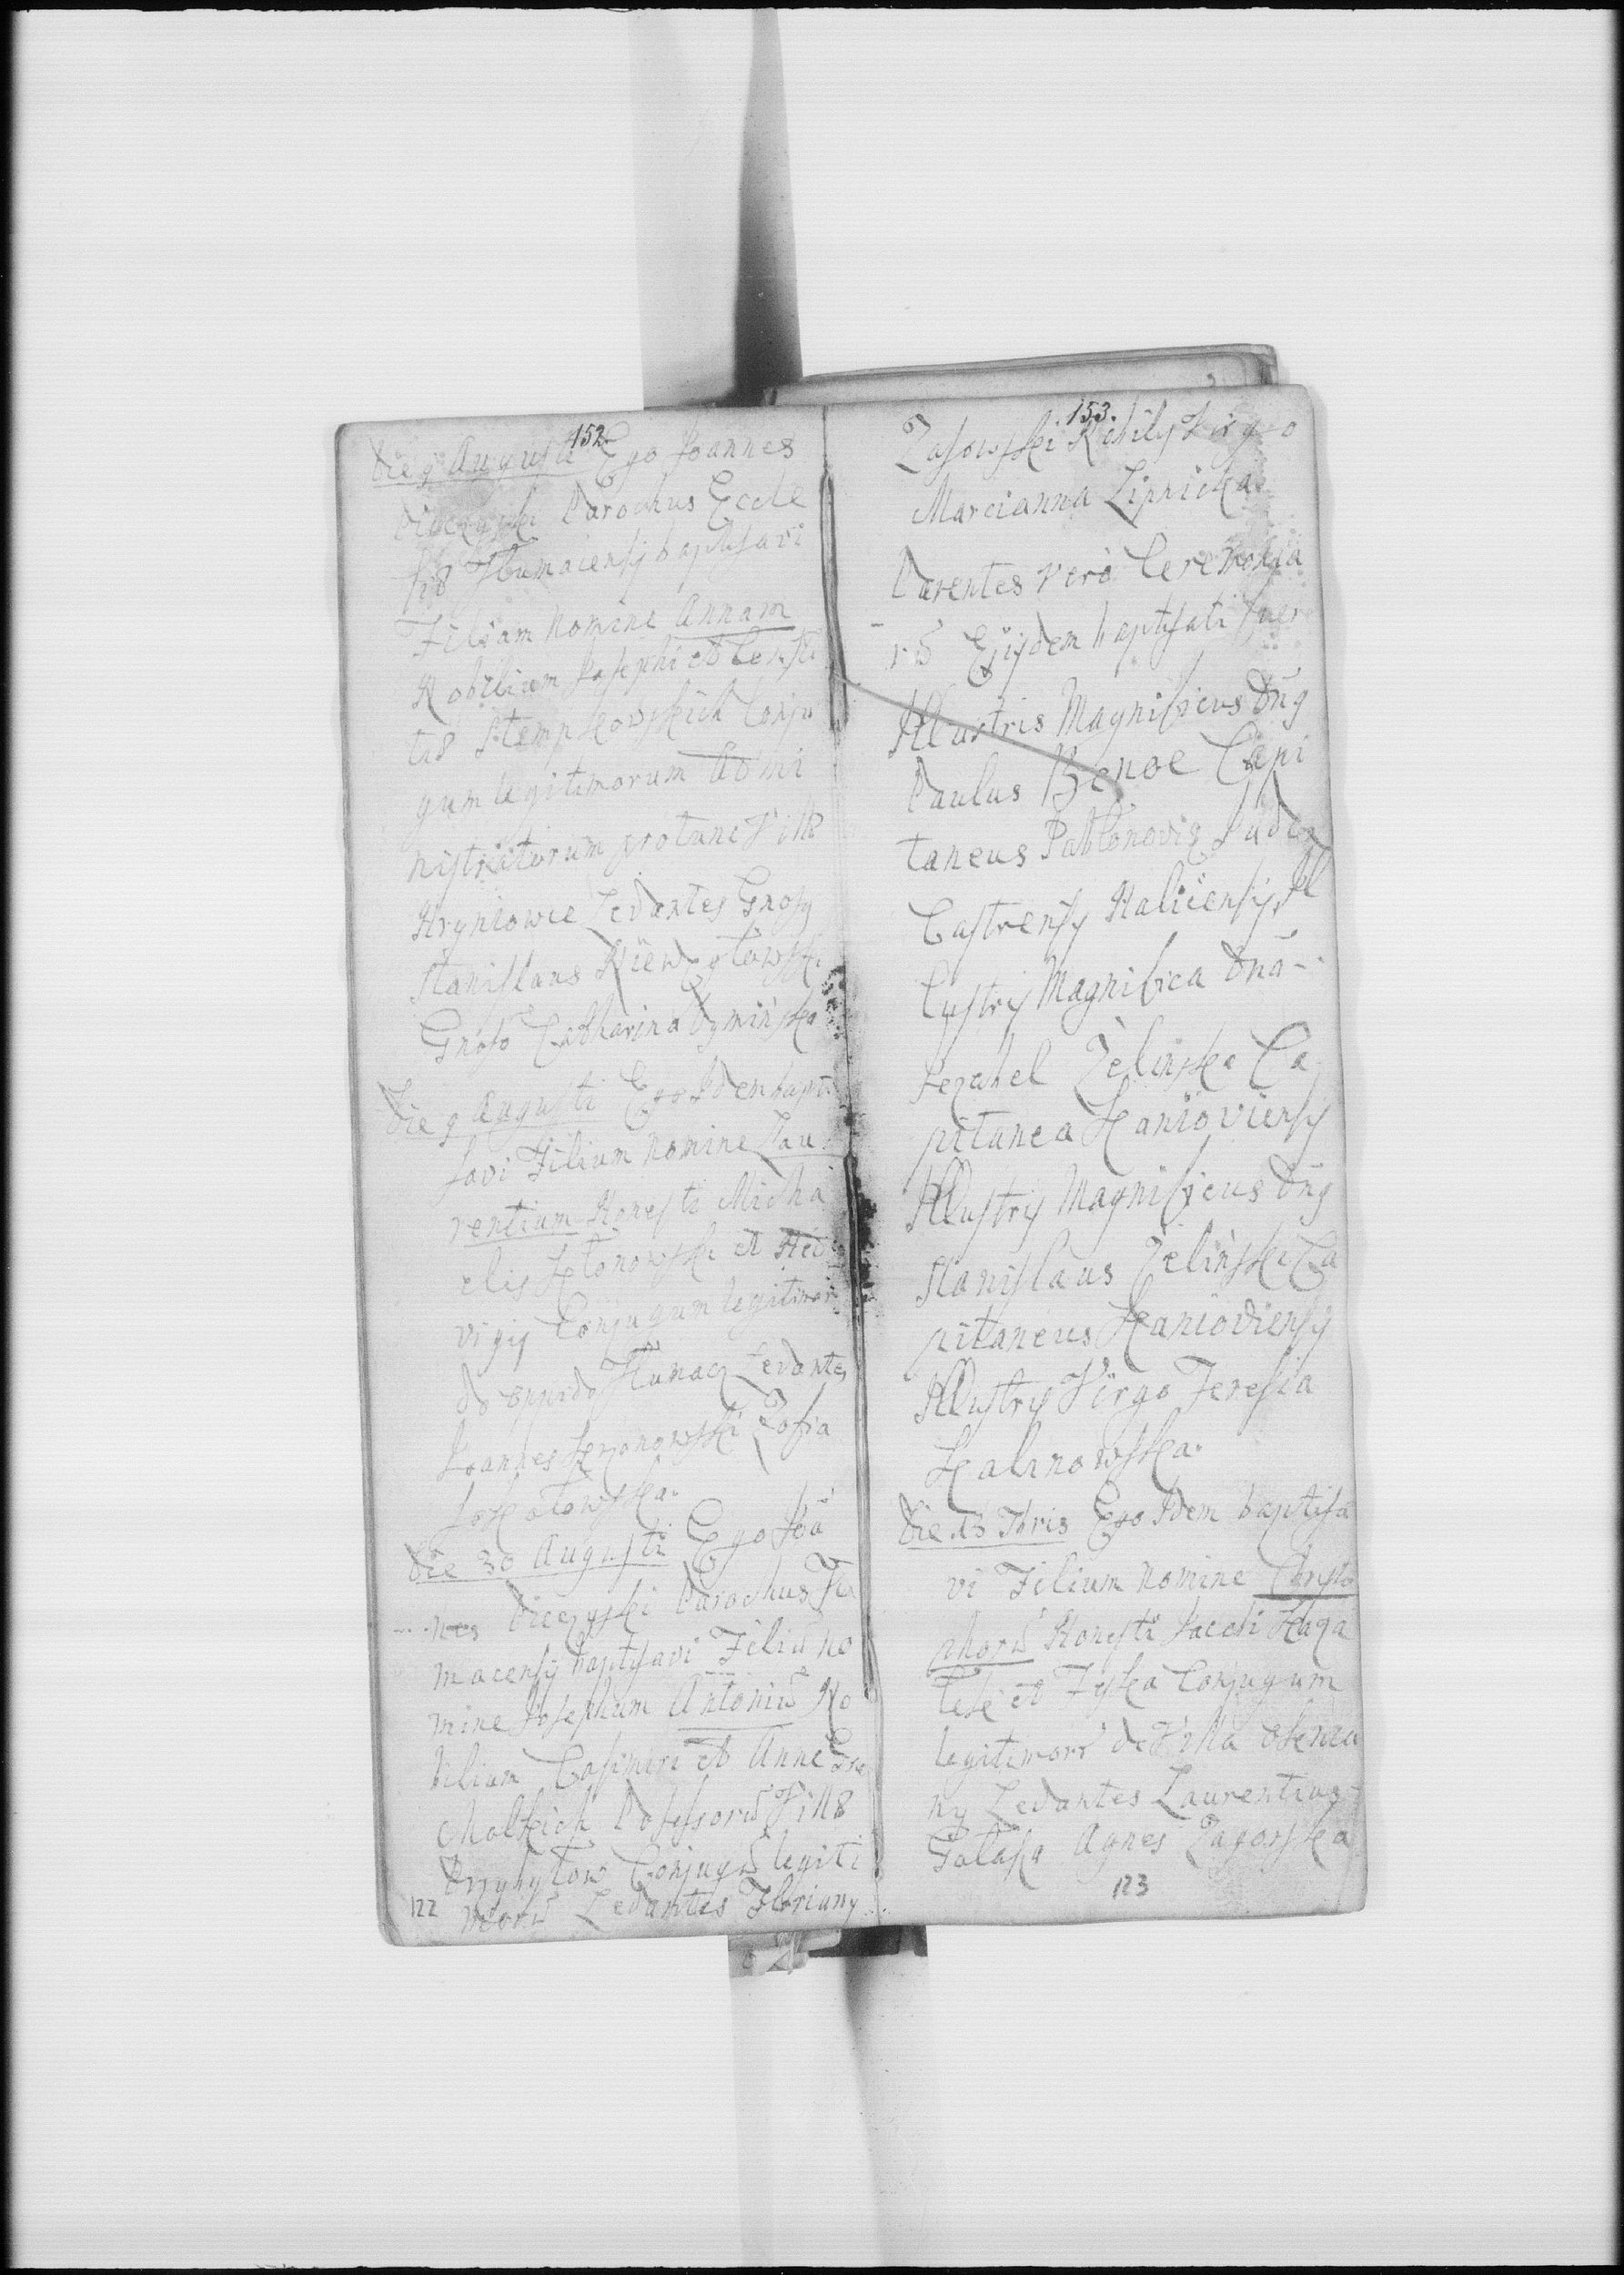 152.
Die 9 Augusti Ego Joannes
Dieczyski Parochus Eccle
siæ Tłumacensis baptisavi
Filiam nomine Annam
Nobilium Josephi et Consta
tiæ Stempkowskich Conju
gum legitimorum Admi
nistratorum protunc Villæ
Hryniowce Levantes Gnosus
Stanislaus Niewęgłowski
Gnosa Catharina Dyminska
Die 9 Augusti Ego Idem bapti
savi Filium nomine Lau
rentium Honesti Micha
elis Słonowski et Hed
vigis Conjugum legitimor
de oppido Tłumacz Levantes
Joannes Zofia
Die 30 Augusti Ego Joa
nnes Dieczyski Parochus Tłu
macensis baptisavi Filiū no
mine Josephum Antoniū No
bilium Casimiri et Annæ
Possessorū Villæ
Przybyłow Conjugū legiti
morū Levantes Florianus
122
153.
Zasowski Nobilis Virgo
Marcianna Lipnicka
Parentes vero Ceremonia
rū Ejusdem baptisati fuer
Illustris Magnificus Dnus
Paulus Benoe Capi
taneus Judex
Castrensis Halicensis, Il
lustris Magnifica Dna
Jezabel Zelinska Ca
pitanea Kanioviensis
Illustris Magnificus Dnus
Stanislaus Zelinski Ca
pitaneus Kanioviensis
Illustris Virgo Teresia
Kalinowska.
Die 15 7bris Ego Idem baptisa
vi Filium nomine Christo
phorū Honesti Jacobi
et Conjugum
legitimorū de Villa
Levantes Laurentius
Agnes Zagorska
123